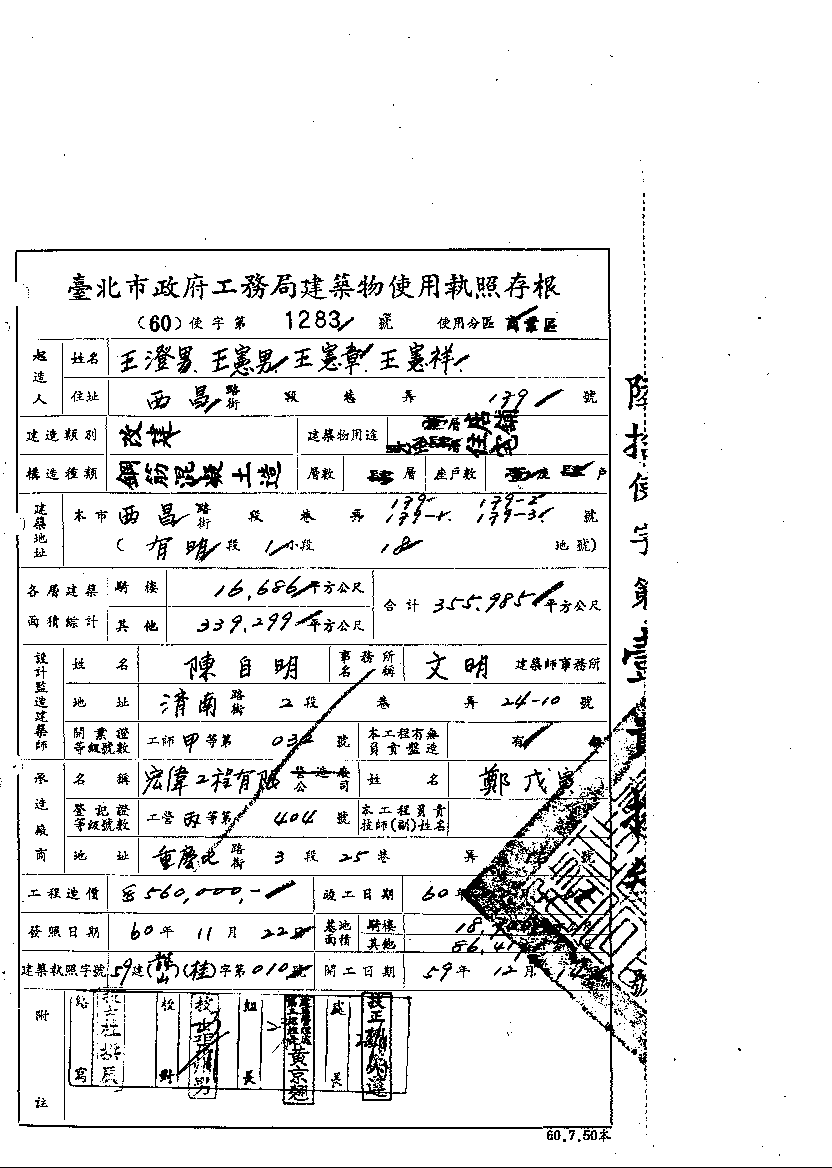 臺北市政府工務局建築物使用執照存根
(60)使字第 1283 號 使用分區 商業區
起造人 姓名 王澄男、王憲男、王憲章、王憲祥
住址 西昌 路街 段 巷 弄 179 號
建造類別 改建 建築物用途 壹層店舖 貳至肆層住宅
構造種類 鋼筋混凝土造 層數 肆層 座戶數 壹座肆戶
建築地址 本市西昌 路街 段 巷 弄 179 179-1 179-2 179-3 號
(有明段 1 小段 18 地號)
各層建築面積綜計 騎樓 16.686 平方公尺 合計 355.985 平方公尺
其他 339.299 平方公尺
設計監造建築師 姓名 陳自明 事務所名稱 文明 建築師事務所
地址 濟南 路街 2 段 巷 弄 24-10 號
開業證等級號數 工師甲等第 032 號 本工程有無負責監造 有
承造廠商 名稱 宏偉工程有限 營造廠公司 姓名 鄭茂
登記證等級號數 工營丙等第 404 號 本工程負責技師(副)姓名
地址 重慶北 路街 3 段 25 巷 弄 號
工程造價 560,000,- 竣工日期 60年
發照日期 60年 11月 22日 基地面積 騎樓 18.
其他 86.41
建築執照字號 59建( 山)(桂)字第010號 開工日期 59年 12月
附註 繕寫 校對 組長 黃京翹 處長 技正
60.7.50本
陸拾使字第壹 號